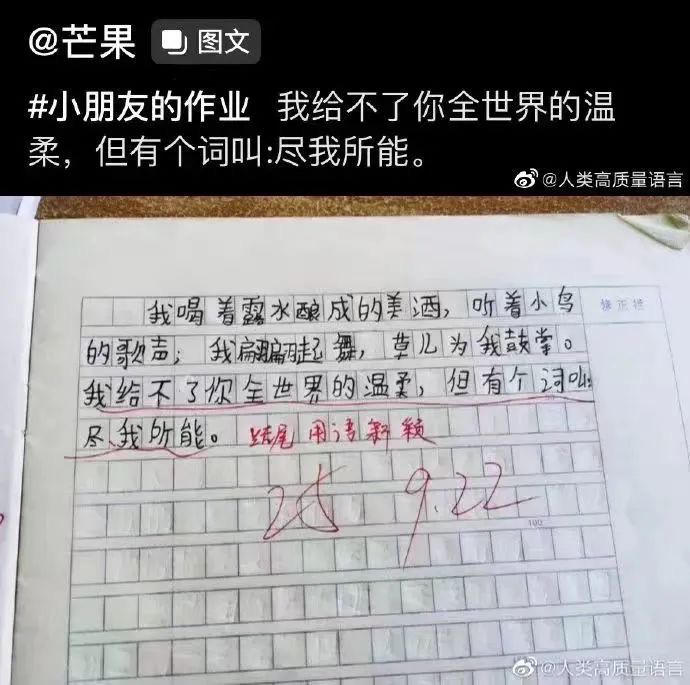 @芒果 图文
#小朋友的作业 我给不了你全世界的温
柔，但有个词叫:尽我所能。
@人类高质量语言
我喝着露水酿成的美酒，听着小鸟
的歌声；我翩翩起舞，草儿为我鼓掌。
我给不了你全世界的温柔，但有个词叫:
尽我所能。 结尾用语新颖
修正栏
9.22
100
@人类高质量语言